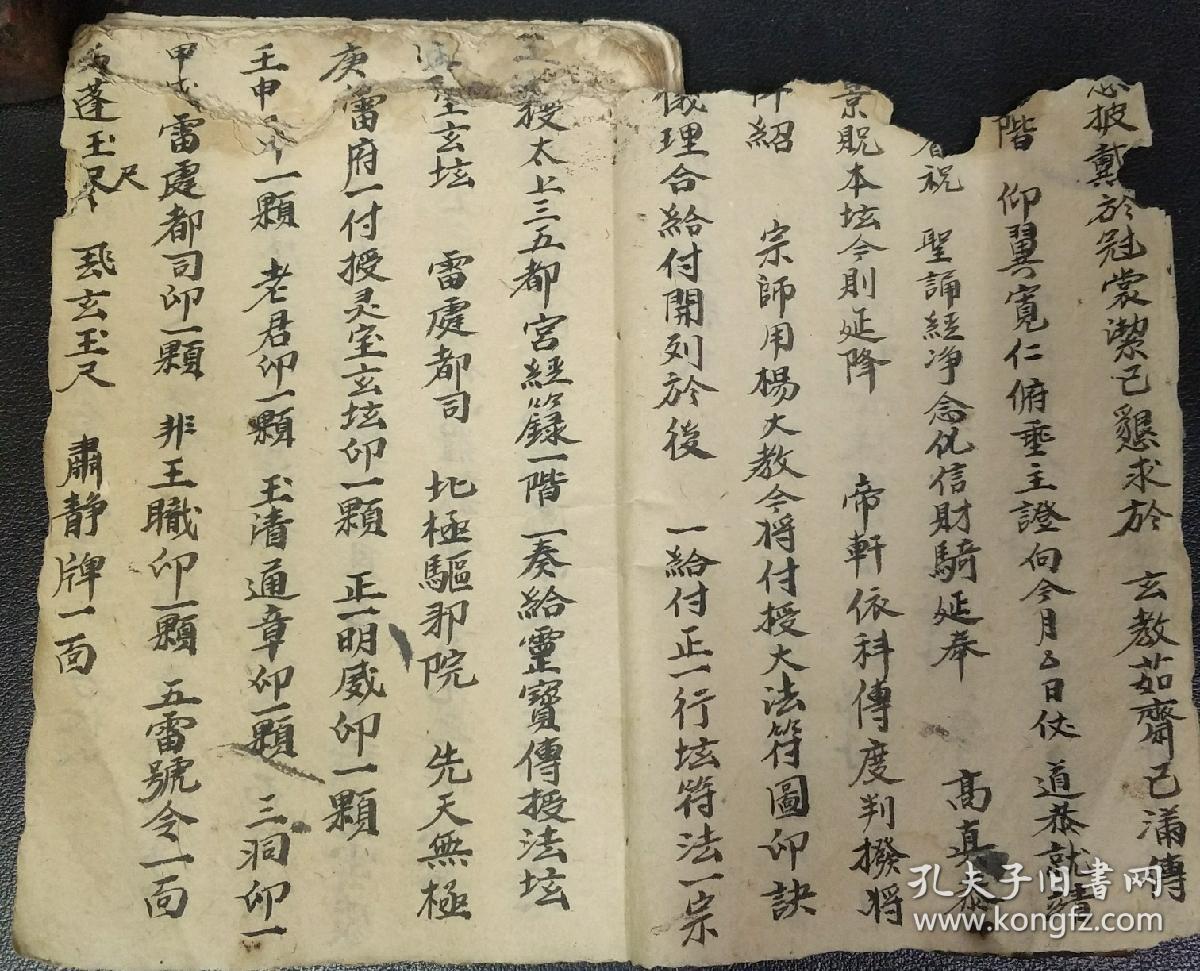 披戴於冠裳潔己懇求於 玄教茹齋已滿傳
階 仰翼寬仁俯垂主證向今月 日伏 道恭就
祝 聖誦經净念仗信財騎延奉 高真
景貺本坛今則延降 帝軒依科傳度判撥將
紹 宗師用楊大教今將付授大法符圖印訣
儀理合給付開列於後 一給付正一行坛符法一宗
授太上三五都宮經籙一階 一奏給靈寶傳授法坛
玄坛 雷處都司 北極驅邪院 先天無極
庚 雷府一付授灵宝玄坛印一顆 正一明威印一顆
壬申 一顆 老君印一顆 玉清通章印一顆 三洞印一
甲 雷處都司印一顆 非王職印一顆 五雷號令一面
蓬玉尺 玄玉尺 肅静牌一面
孔夫子旧书网
www.kongfz.com